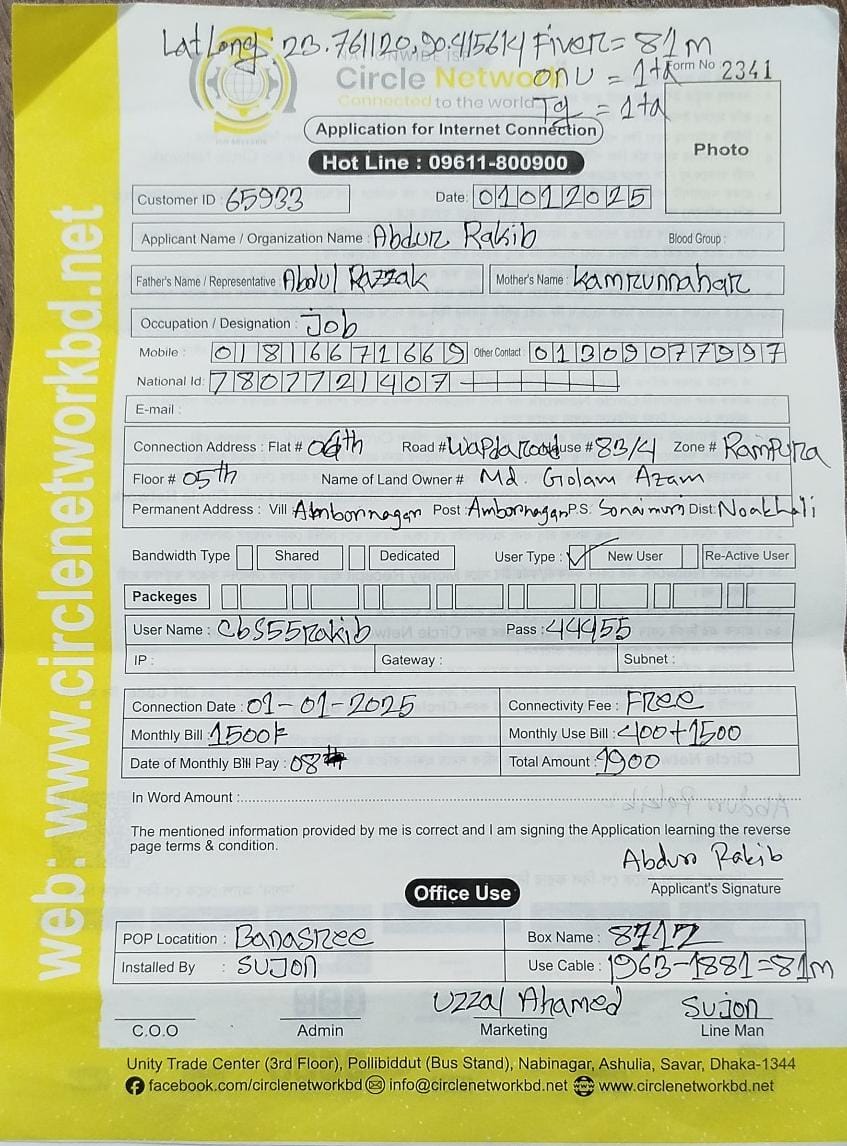 Lat Long: 23.761120,90.415614 Fiver= 81m
NATIONWIDE ISP
onu = 1ta Form No 2341
Circle Network
Connected to the world Tg = 1ta
Application for Internet Connection
Photo
Hot Line : 09611-800900
Customer ID : 65933 Date: 01012025
Applicant Name / Organization Name : Abdur Rakib Blood Group :
Father's Name / Representative : Abdul Razzak Mother's Name : Kamrunnahar
Occupation / Designation : Job
Mobile : 01816671669 Other Contact : 01309077997
National Id: 7807721407
E-mail :
Connection Address : Flat # Road # Wapda road House # 83/4 Zone # Rampura
Floor # 05th Name of Land Owner # Md. Golam Azam
Permanent Address : Vill Ambornagar Post : Ambornagar P.S. Sonaimuri Dist: Noakhali
Bandwidth Type Shared Dedicated User Type : ✓ New User Re-Active User
Packeges
User Name : cbs55rakib Pass : 44455
IP : Gateway : Subnet :
Connection Date : 01-01-2025 Connectivity Fee : Free
Monthly Bill : 1500k Monthly Use Bill : 400+1500
Date of Monthly Bill Pay : 08th Total Amount : 1900
In Word Amount :
The mentioned information provided by me is correct and I am signing the Application learning the reverse
page terms & condition.
Abdur Rakib
Applicant's Signature
Office Use
POP Locatition : Banasree Box Name : 8712
Installed By : Sujon Use Cable : 1963-1881=81m
Uzzal Ahamed Sujon
C.O.O Admin Marketing Line Man
Unity Trade Center (3rd Floor), Pollibiddut (Bus Stand), Nabinagar, Ashulia, Savar, Dhaka-1344
facebook.com/circlenetworkbd info@circlenetworkbd.net www.circlenetworkbd.net
web: www.circlenetworkbd.net